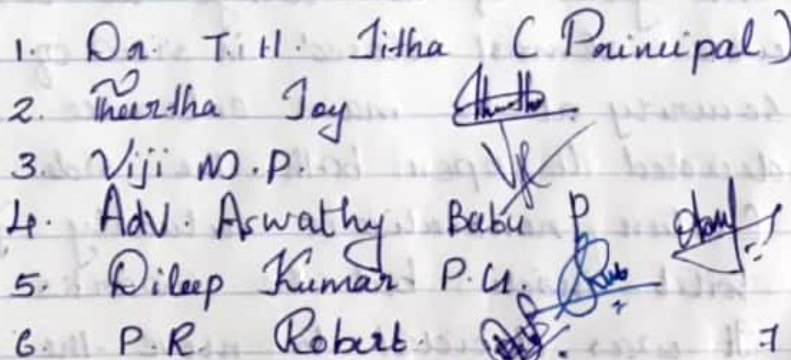 1. Dr. T.H. Jitha (Principal)
2. Theertha Joy
3. Viji M.P.
4. Adv. Aswathy Babu P
5. Dileep Kumar P.U.
6. P.R. Robert.